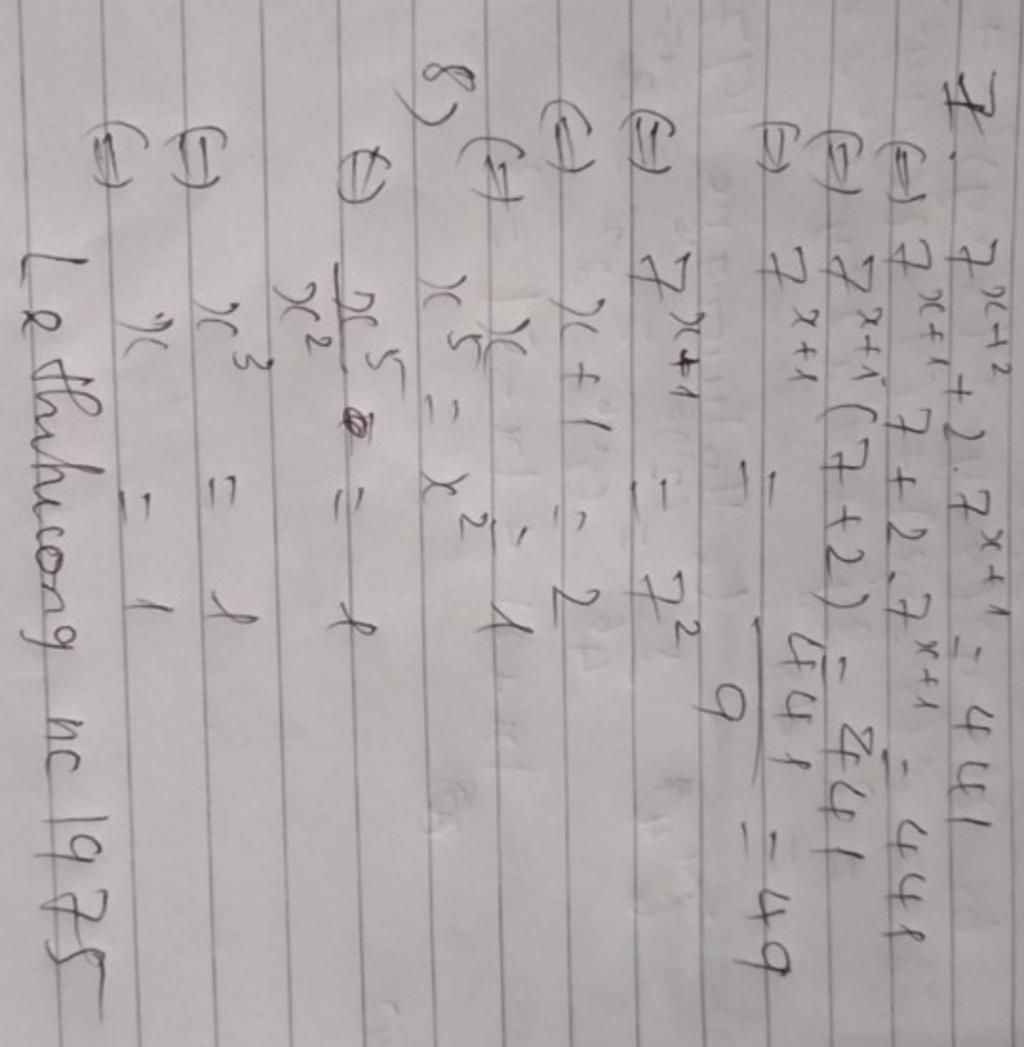 7. 7^{x+2} + 2.7^{x+1} = 441
(=) 7^{x+1}.7 + 2.7^{x+1} = 441
(=) 7^{x+1} (7 + 2) = 441
(=) 7^{x+1} = \frac{441}{9} = 49
(=) 7^{x+1} = 7^2
(=) x + 1 = 2
(=) x = 1
8) x^5 = x^2
(=) \frac{x^5}{x^2} = 1
(=) x^3 = 1
(=) x = 1
Lethihuong nc 1975